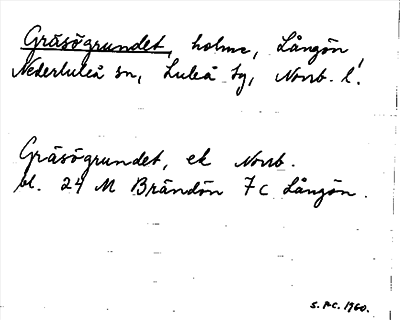 Gräsögrundet, holme, Långön,
Nederluleå sn, Luleå tg, Norrb. l.
Gräsögrundet, ek Norrb.
bl. 24 M Brändön 7 C Långön.
S. P-C. 1960.